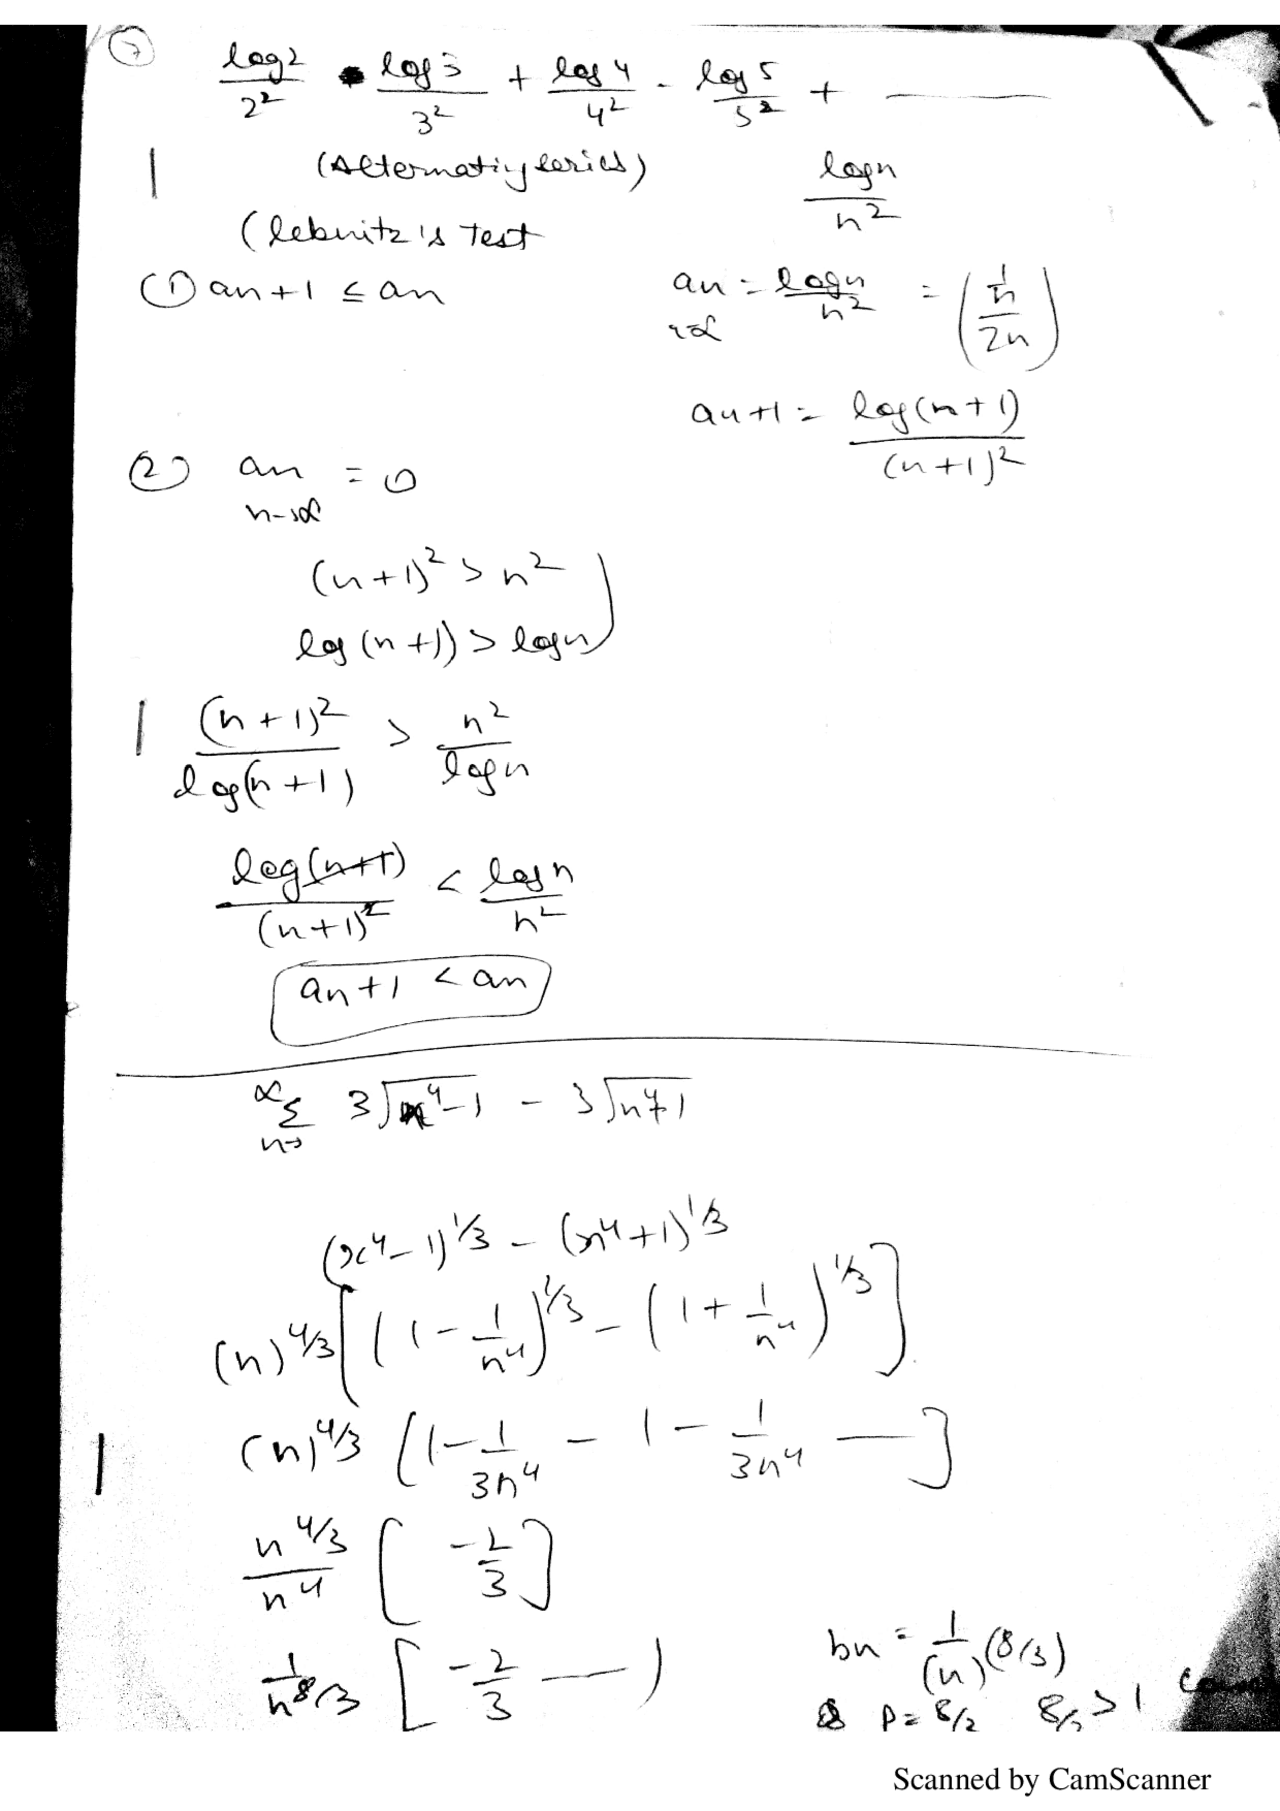 7
log2/2² · log3/3² + log4/4² - log5/5² + ———
(Alternatiy series)
logn/n²
(lebnitz's Test
① an+1 ≤ an
an = logn/n² = ((1/n)/2n)
an+1 = log(n+1)/(n+1)²
② an = 0
n→∞
(n+1)² > n²
log(n+1) > logn
(n+1)²/log(n+1) > n²/logn
log(n+1)/(n+1)² < logn/n²
an+1 < an
∞Σn= 3√n⁴-1 - 3√n⁴+1
(x⁴-1)^1/3 - (x⁴+1)^1/3
(n)^4/3 [(1-1/n⁴)^1/3 - (1+1/n⁴)^1/3]
(n)^4/3 [1-1/3n⁴ - 1 - 1/3n⁴ —]
n^4/3/n⁴ [-2/3]
1/n^8/3 [-2/3 —)
bn = 1/(n)^(8/3)
P = 8/2 8/3 > 1
Scanned by CamScanner